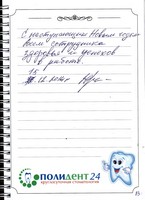 С наступающим Новым годом
Всем сотрудникам
здоровья и успехов
в работе.
ПОЛИДЕНТ 24
круглосуточная стоматология